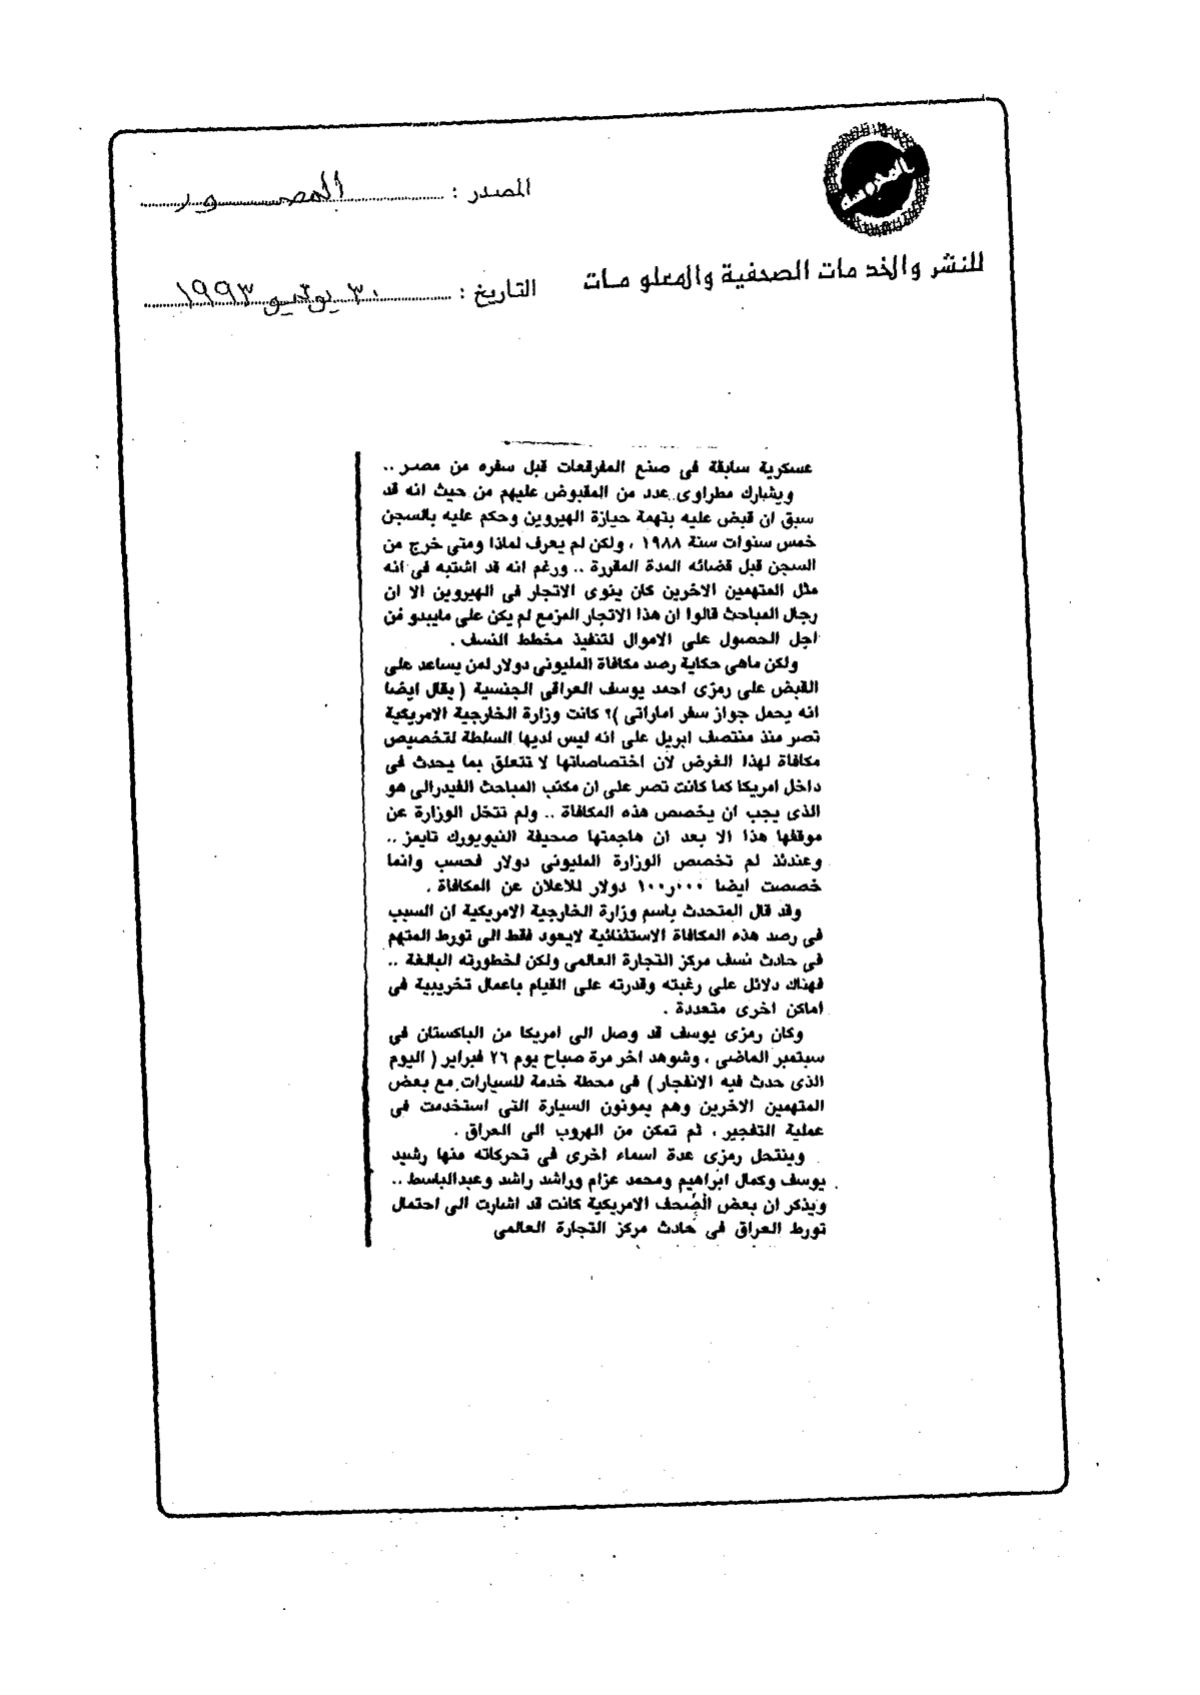 المحروسة
للنشر والخدمات الصحفية والمعلومات
المصدر : المصور
التاريخ : ٣٠ يونيو ١٩٩٣
عسكرية سابقة فى صنع المفرقعات قبل سفره من مصر ..
ويشارك مطراوى عدد من المقبوض عليهم من حيث انه قد
سبق ان قبض عليه بتهمة حيازة الهيروين وحكم عليه بالسجن
خمس سنوات سنة ١٩٨٨ ، ولكن لم يعرف لماذا ومتى خرج من
السجن قبل قضائه المدة المقررة .. ورغم انه قد اشتبه فى انه
مثل المتهمين الاخرين كان ينوى الاتجار فى الهيروين الا ان
رجال المباحث قالوا ان هذا الاتجار المزمع لم يكن على مايبدو من
اجل الحصول على الاموال لتنفيذ مخطط النسف .
ولكن ماهى حكاية رصد مكافاة المليونى دولار لمن يساعد على
القبض على رمزى احمد يوسف العراقى الجنسية ( يقال ايضا
انه يحمل جواز سفر اماراتى )؟ كانت وزارة الخارجية الامريكية
تصر منذ منتصف ابريل على انه ليس لديها السلطة لتخصيص
مكافاة لهذا الغرض لان اختصاصاتها لا تتعلق بما يحدث فى
داخل امريكا كما كانت تصر على ان مكتب المباحث الفيدرالى هو
الذى يجب ان يخصص هذه المكافاة .. ولم تتخل الوزارة عن
موقفها هذا الا بعد ان هاجمتها صحيفة النيويورك تايمز ..
وعندئذ لم تخصص الوزارة المليونى دولار فحسب وانما
خصصت ايضا ١٠٠ر٠٠٠ دولار للاعلان عن المكافاة .
وقد قال المتحدث باسم وزارة الخارجية الامريكية ان السبب
فى رصد هذه المكافاة الاستثنائية لايعود فقط الى تورط المتهم
فى حادث نسف مركز التجارة العالمى ولكن لخطورته البالغة ..
فهناك دلائل على رغبته وقدرته على القيام باعمال تخريبية فى
اماكن اخرى متعددة .
وكان رمزى يوسف قد وصل الى امريكا من الباكستان فى
سبتمبر الماضى ، وشوهد اخر مرة صباح يوم ٢٦ فبراير ( اليوم
الذى حدث فيه الانفجار ) فى محطة خدمة للسيارات مع بعض
المتهمين الاخرين وهم يمونون السيارة التى استخدمت فى
عملية التفجير ، ثم تمكن من الهروب الى العراق .
وينتحل رمزى عدة اسماء اخرى فى تحركاته منها رشيد
يوسف وكمال ابراهيم ومحمد عزام وراشد راشد وعبدالباسط ..
ويذكر ان بعض الصحف الامريكية كانت قد اشارت الى احتمال
تورط العراق فى حادث مركز التجارة العالمى